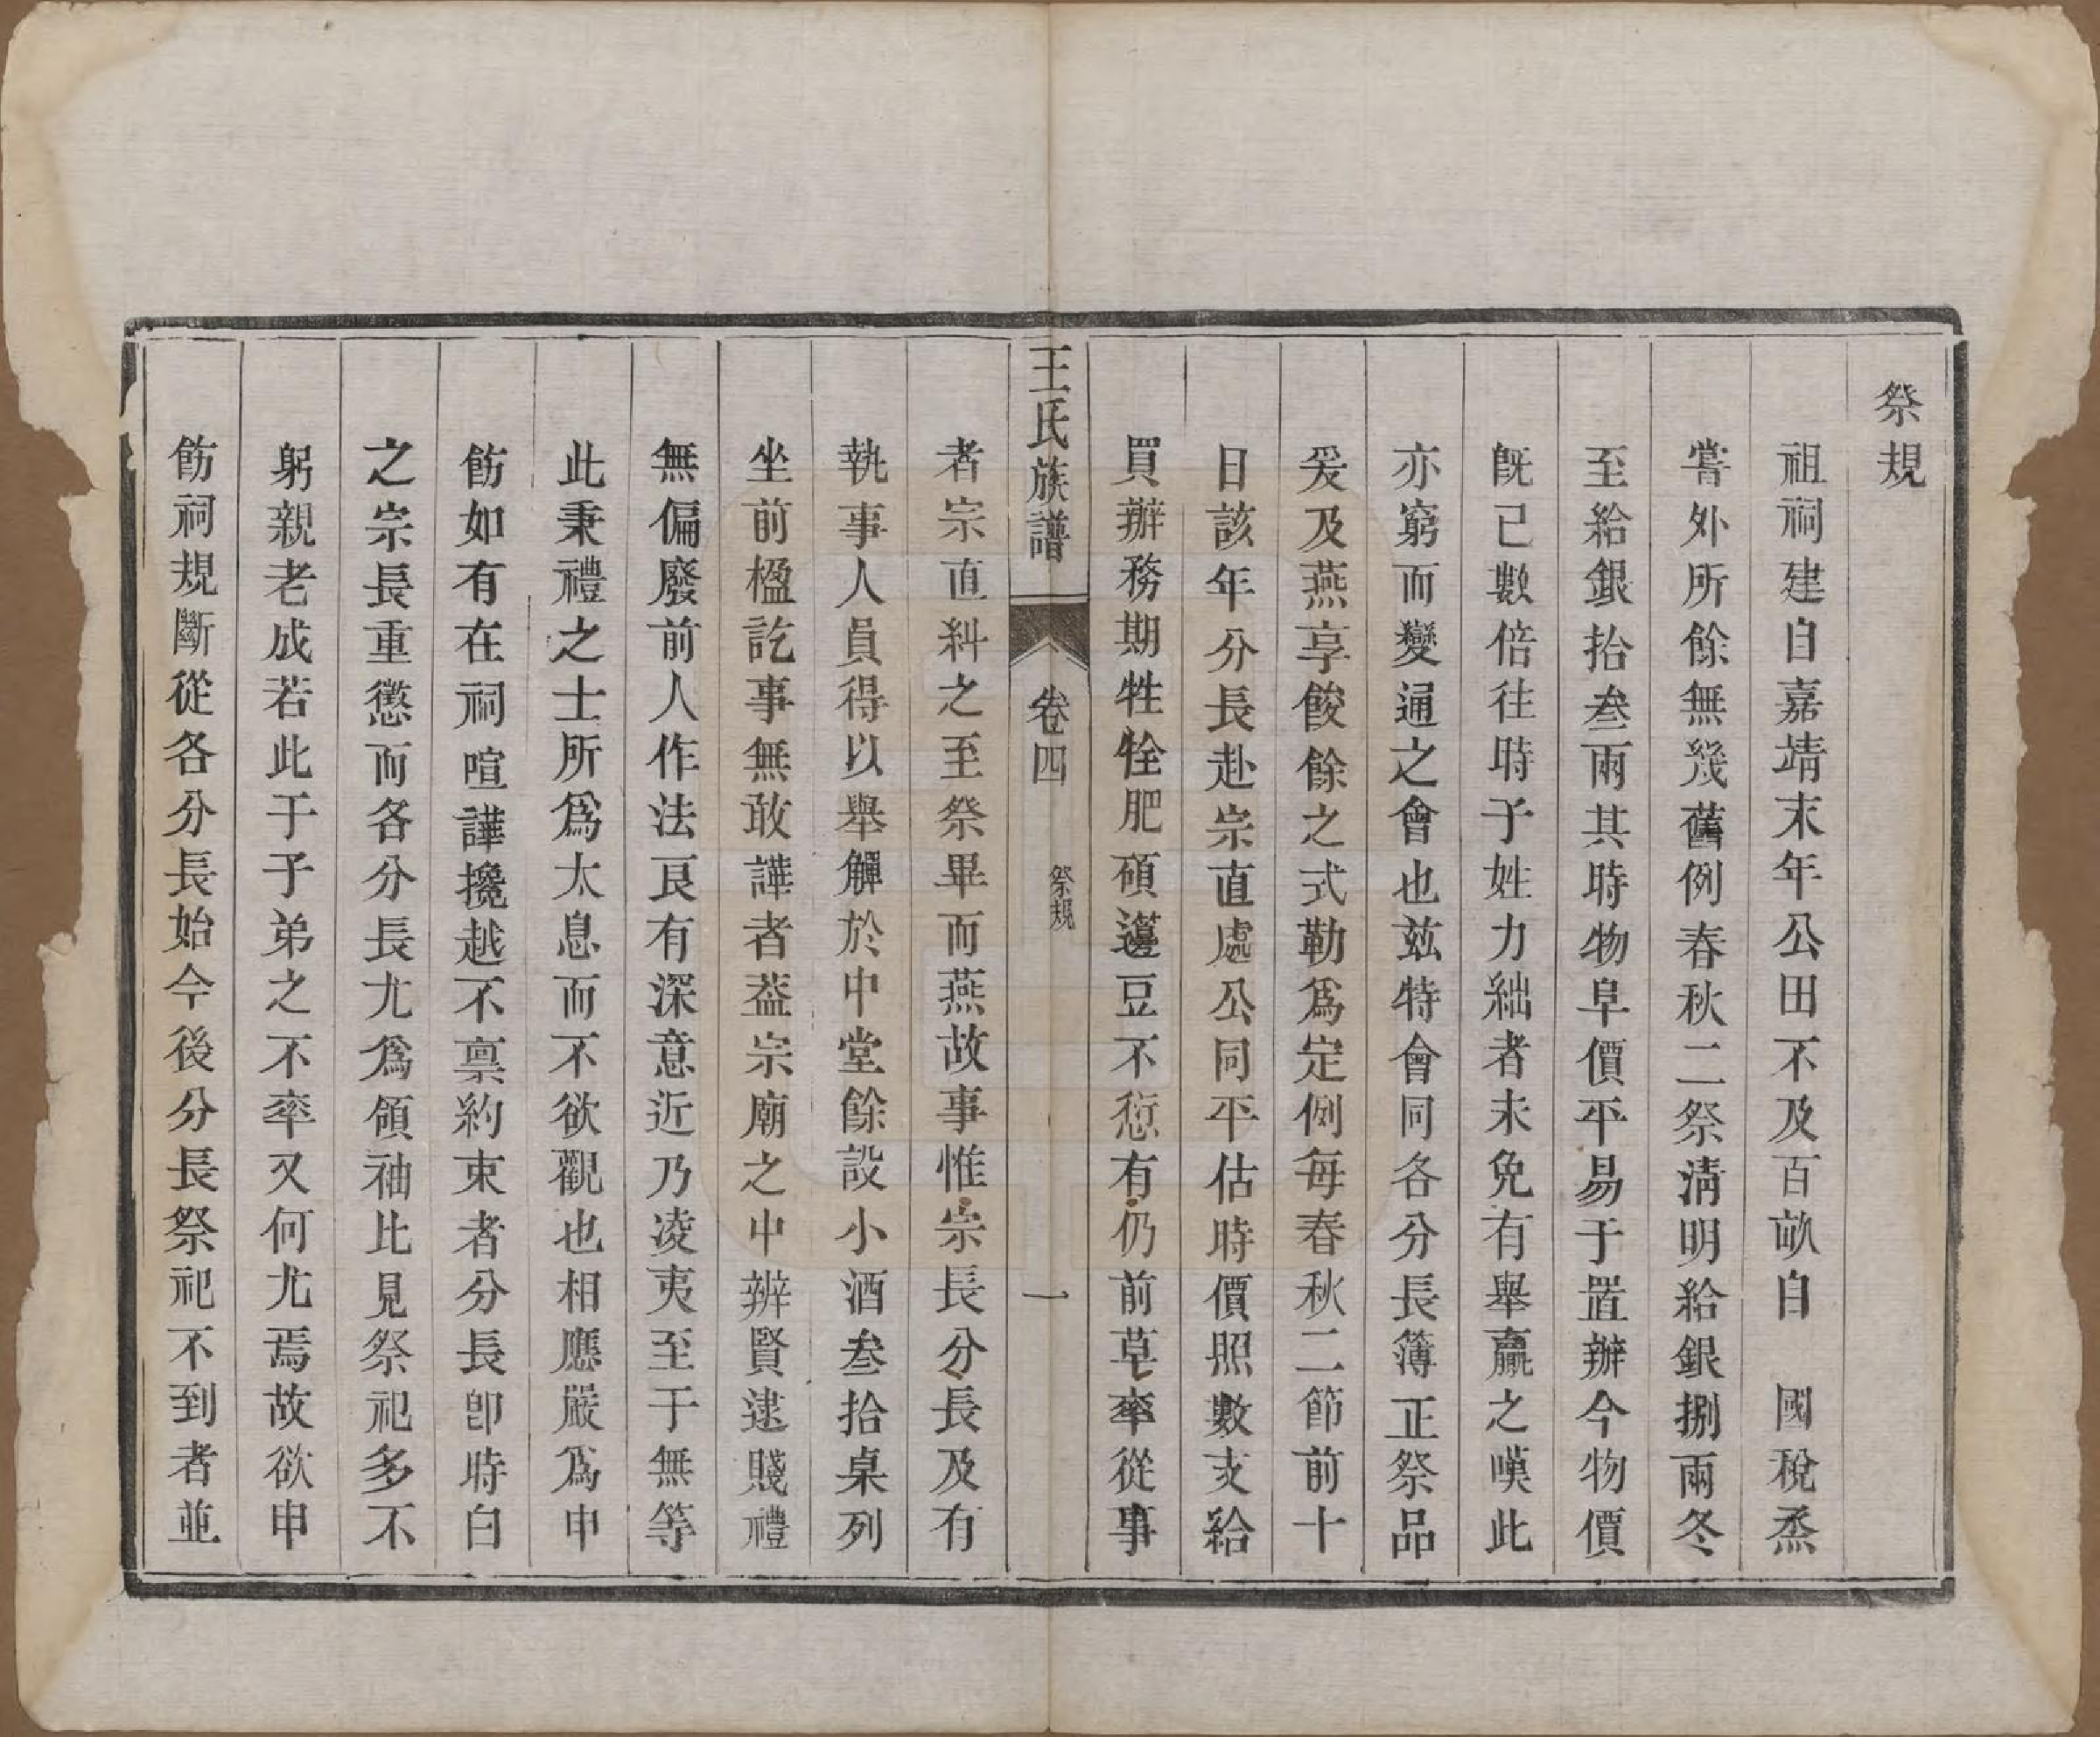 祭規
祖祠建自嘉靖末年公田不及百畝自　國稅烝
嘗外所餘無幾舊例春秋二祭淸明給銀捌兩冬
至給銀拾叁兩其時物阜價平易于置辦今物價
旣已數倍往時予姓力絀者未免有舉贏之嘆此
亦窮而變通之會也玆特會同各分長簿正祭品
爰及燕享餕餘之式勒爲定例每春秋二節前十
日該年分長赴宗直處公同平估時價照數支給
買辦務期牲牷肥碩籩豆不愆有仍前草率從事
王氏族譜　卷四　祭規　一
者宗直糾之至祭畢而燕故事惟宗長分長及有
執事人員得以舉觶於中堂餘設小酒叁拾桌列
坐前楹訖事無敢譁者葢宗廟之中辨賢逮賤禮
無偏廢前人作法良有深意近乃凌夷至于無等
此秉禮之士所爲太息而不欲觀也相應嚴爲申
飭如有在祠喧譁攙越不稟約束者分長卽時白
之宗長重懲而各分長尤爲領袖比見祭祀多不
躬親老成若此于予弟之不率又何尤焉故欲申
飭祠規斷從各分長始今後分長祭祀不到者並